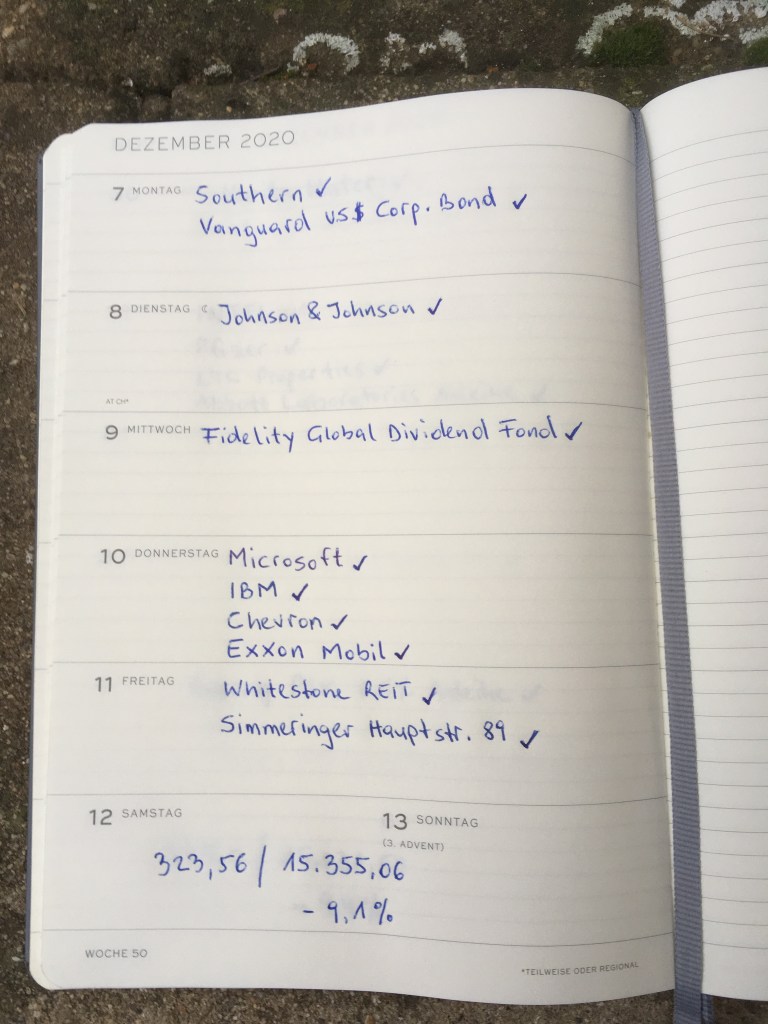 DEZEMBER 2020
7 MONTAG Southern ✓
Vanguard US$ Corp. Bond ✓
8 DIENSTAG ☾ Johnson & Johnson ✓
AT CH*
9 MITTWOCH Fidelity Global Dividend Fond ✓
10 DONNERSTAG Microsoft ✓
IBM ✓
Chevron ✓
Exxon Mobil ✓
11 FREITAG Whitestone REIT ✓
Simmeringer Hauptstr. 89 ✓
12 SAMSTAG
13 SONNTAG
(3. ADVENT)
323,56 / 15.355,06
- 9,1%
WOCHE 50
*TEILWEISE ODER REGIONAL